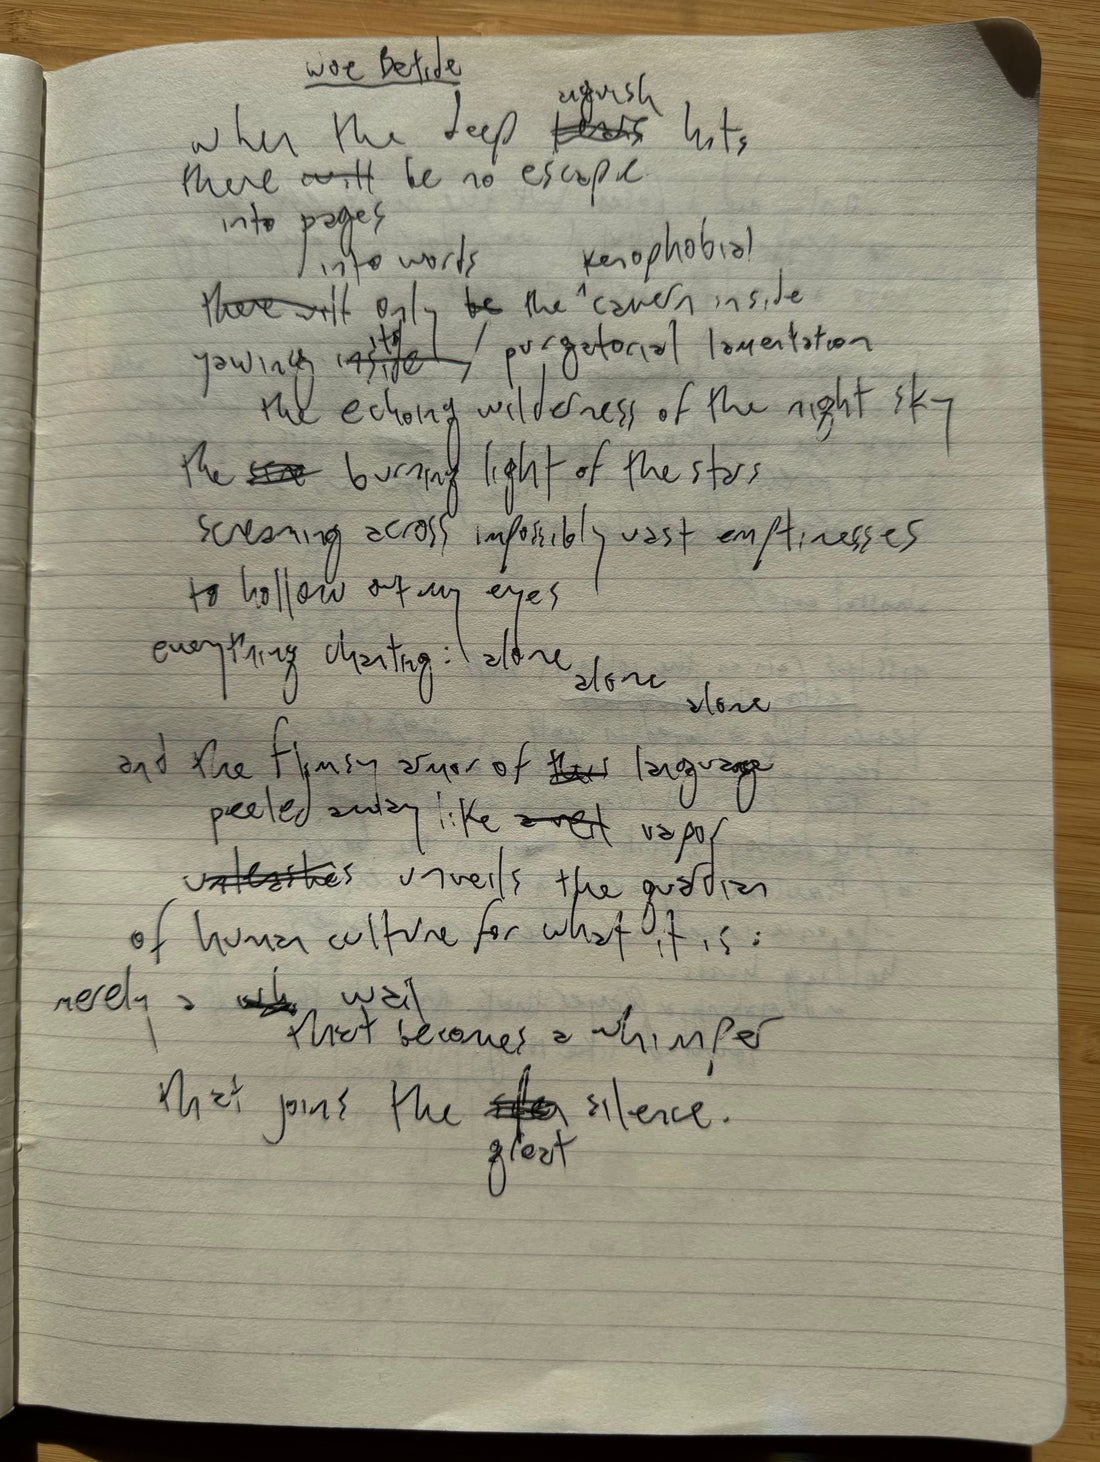 woe Betide
when the deep anguish hits,
there will be no escape
into pages
into words
there will only be the xenophobial cavern inside
yawning into purgatorial lamentation
the echoing wilderness of the night sky
the burning light of the stars
screaming across impossibly vast emptinesses
to hollow out my eyes
everything chanting: alone
alone
alone
and the flimsy armor of language
peeled away like vapor
unleashes unveils the guardian
of human culture for what it is:
merely a wail
that becomes a whimper
that joins the great silence.